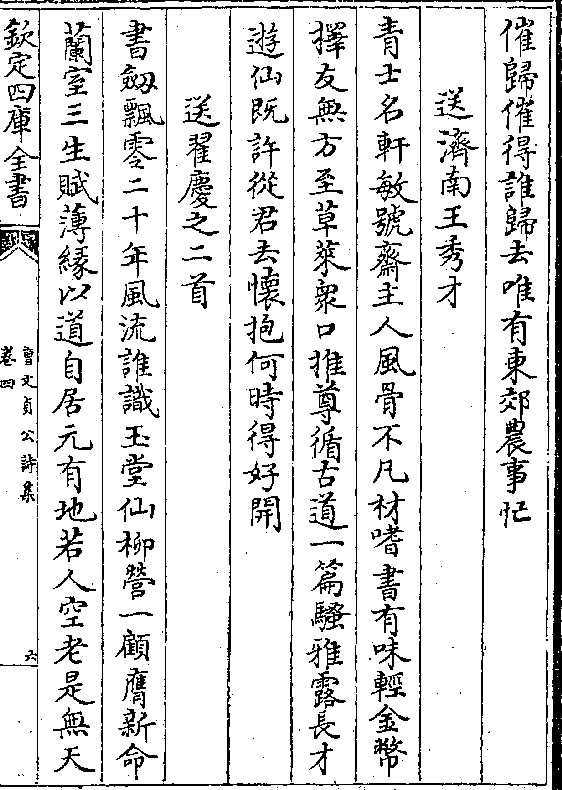 催歸催得誰歸去唯有東郊農事忙
送濟南王秀才
青士名軒敏號齋主人風骨不凡材嗜書有味輕金幣
擇友無方至草萊衆口推尊循古道一篇騷雅露長才
遊仙既許從君去懷抱何時得好開
送翟慶之二首
書劔飄零二十年風流誰識玉堂仙柳營一顧膺新命
蘭室三生賦薄緣以道自居元有地若人空老是無天
欽定四庫全書
曹文貞公詩集
卷四
六